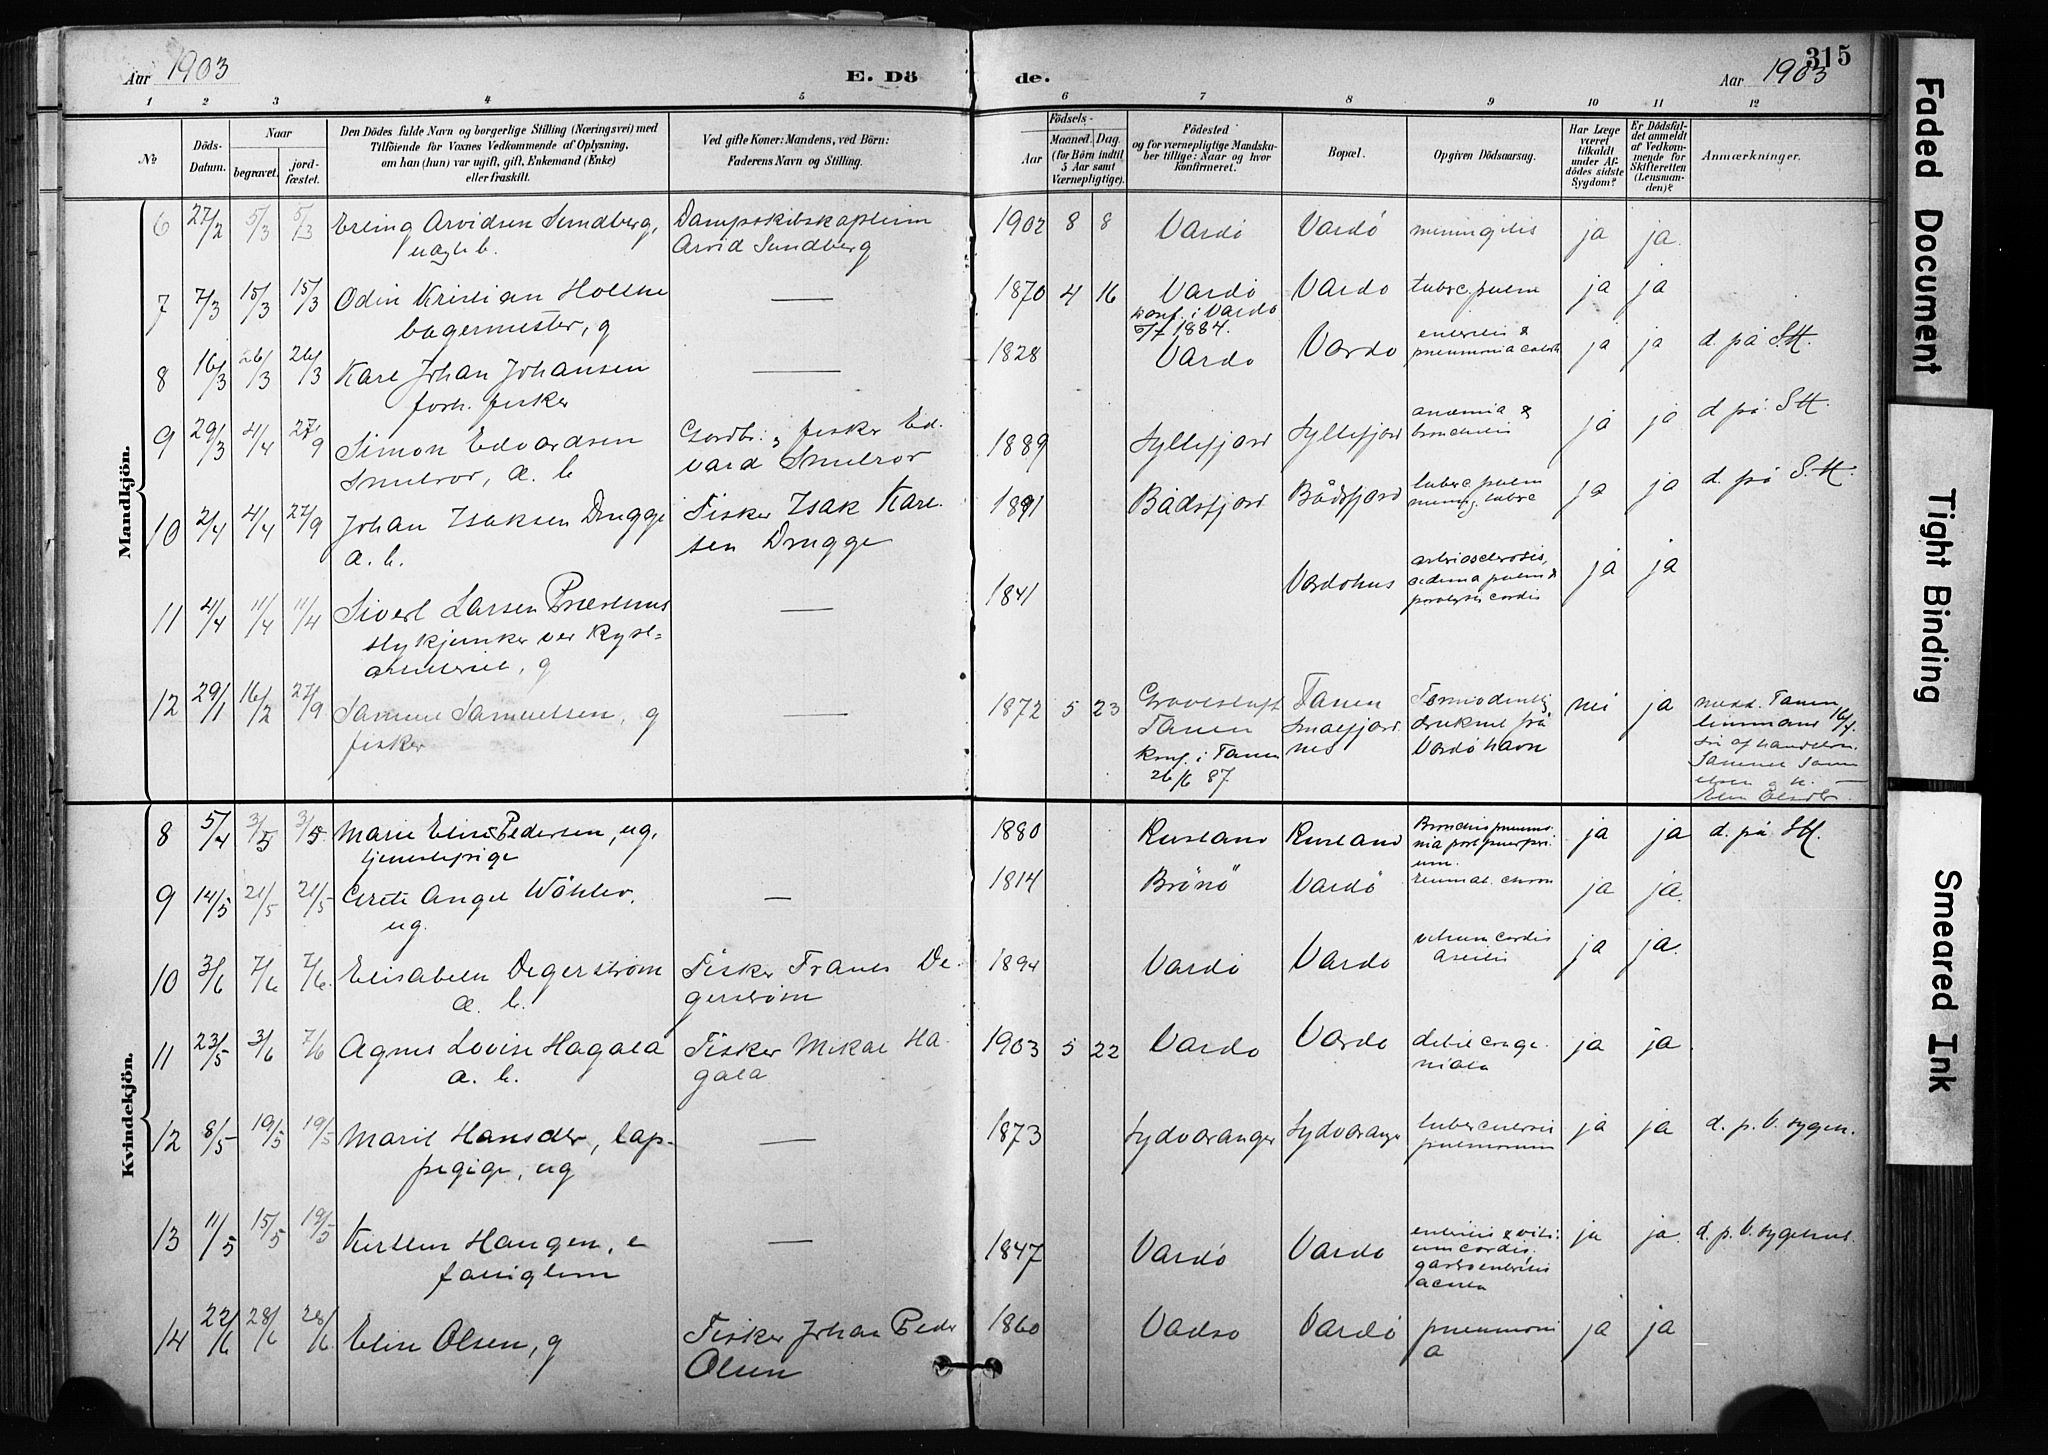 Aar 1903 E. Dö
1 2 3 4 5
No Döds-Datum. Naar begravet. jordfæstet. Den Dödes fulde Navn og borgerlige Stilling (Næringsvei) med Tilföiende for Voxnes Vedkommende af Oplysning, om han (hun) var ugift, gift, Enkemand (Enke) eller fraskilt. Ved gifte Koner: Mandens, ved Börn: Faderens Navn og Stilling.
de. Aar 1903 315
6 7 8 9 10 11 12
Födsels- Aar Maaned. Dag. (for Börn indtil 5 Aar samt Værnepligtige). Födested og for værnepligtige Mandskaber tillige: Naar og hvor konfirmeret. Bopæl. Opgiven Dödsaarsag. Har Læge været tilkaldt under Afdödes sidste Sygdom? Er Dödsfaldet anmeldt af Vedkommende for Skifteretten (Lensmanden)? Anmærkninger.
Mandkjön.
6 27/2 5/3 5/3 Erling Arvidsen Sundberg, Dampskibskaptein Arvid Sundberg 1902 8 8 Vardö Vardö ja ja.
7 7/3 15/3 15/3 Odin Kristian bagermester, g — 1870 4 16 Vardö konf. i Vardö 1884. Vardö tuberc. pulm ja ja
8 16/3 26/3 26/3 Karl Johan Johansen forh. fisker — 1828 Vardö Vardö enteritis & pneumonia ja ja d. på St.
9 29/3 4/4 27/9 Simon Edvardsen Smelror, æ. b. Gårdbr. & fisker Edvard Smelror 1889 Syltefjord Syltefjord anæmia & ja ja d. på St.
10 2/4 4/4 27/9 Johan Isaksen Drugge æ. b. Fisker Isak Karlsen Drugge 1891 Bådsfjord Bådsfjord tuberc pulm mening. tuberc ja ja d. på St.
11 4/4 11/4 11/4 Sivert Larsen stykjunker ved Kystartilleriet, g — 1841 Vardöhus arteriosclerosis, oedema pulm & paralysis cordis ja ja
12 29/1 16/2 27/9 Samuel Samuelsen, g fisker — 1872 5 23 Tanen konf. i Tanen 26/6 87 Tanen Smalfjordnes Formodentlig druknet fra Vardö havn nei ja
Kvindekjön.
8 5/4 3/5 3/5 Marie Elise Pedersen, ug. tjenestepige 1880 Rusland Rusland ja ja d. på St.
9 14/5 21/5 21/5 Angel Wöhler. ug. — 1814 Brönö Vardö rheumat. chron ja ja.
10 3/6 7/6 7/6 Elisabeth Degerström æ. b. Fisker Frants Degerström 1894 Vardö Vardö vitium cordis ja ja.
11 23/5 3/6 7/6 Agnes Lovise Hagala æ. b. Fisker Mikal Hagala 1903 5 22 Vardö Vardö debil congenitala ja ja.
12 8/5 19/5 19/5 Marit Hansdtr, lappepige, ug — 1873 Sydvaranger Sydvaranger tuberculosis pulmonum ja ja d. p. V. sygeh.
13 11/5 15/5 19/5 Kirsten Haugen, e fattiglem — 1847 Vardö Vardö enteritis & vitium cordis. gastroenteritis acuta ja ja. d. p. V. sygehus.
14 22/6 28/6 28/6 Elise Olsen, g Fisker Johan Peder Olsen 1860 Vadsö Vardö pneumonia ja ja
Faded Document
Tight Binding
Smeared Ink